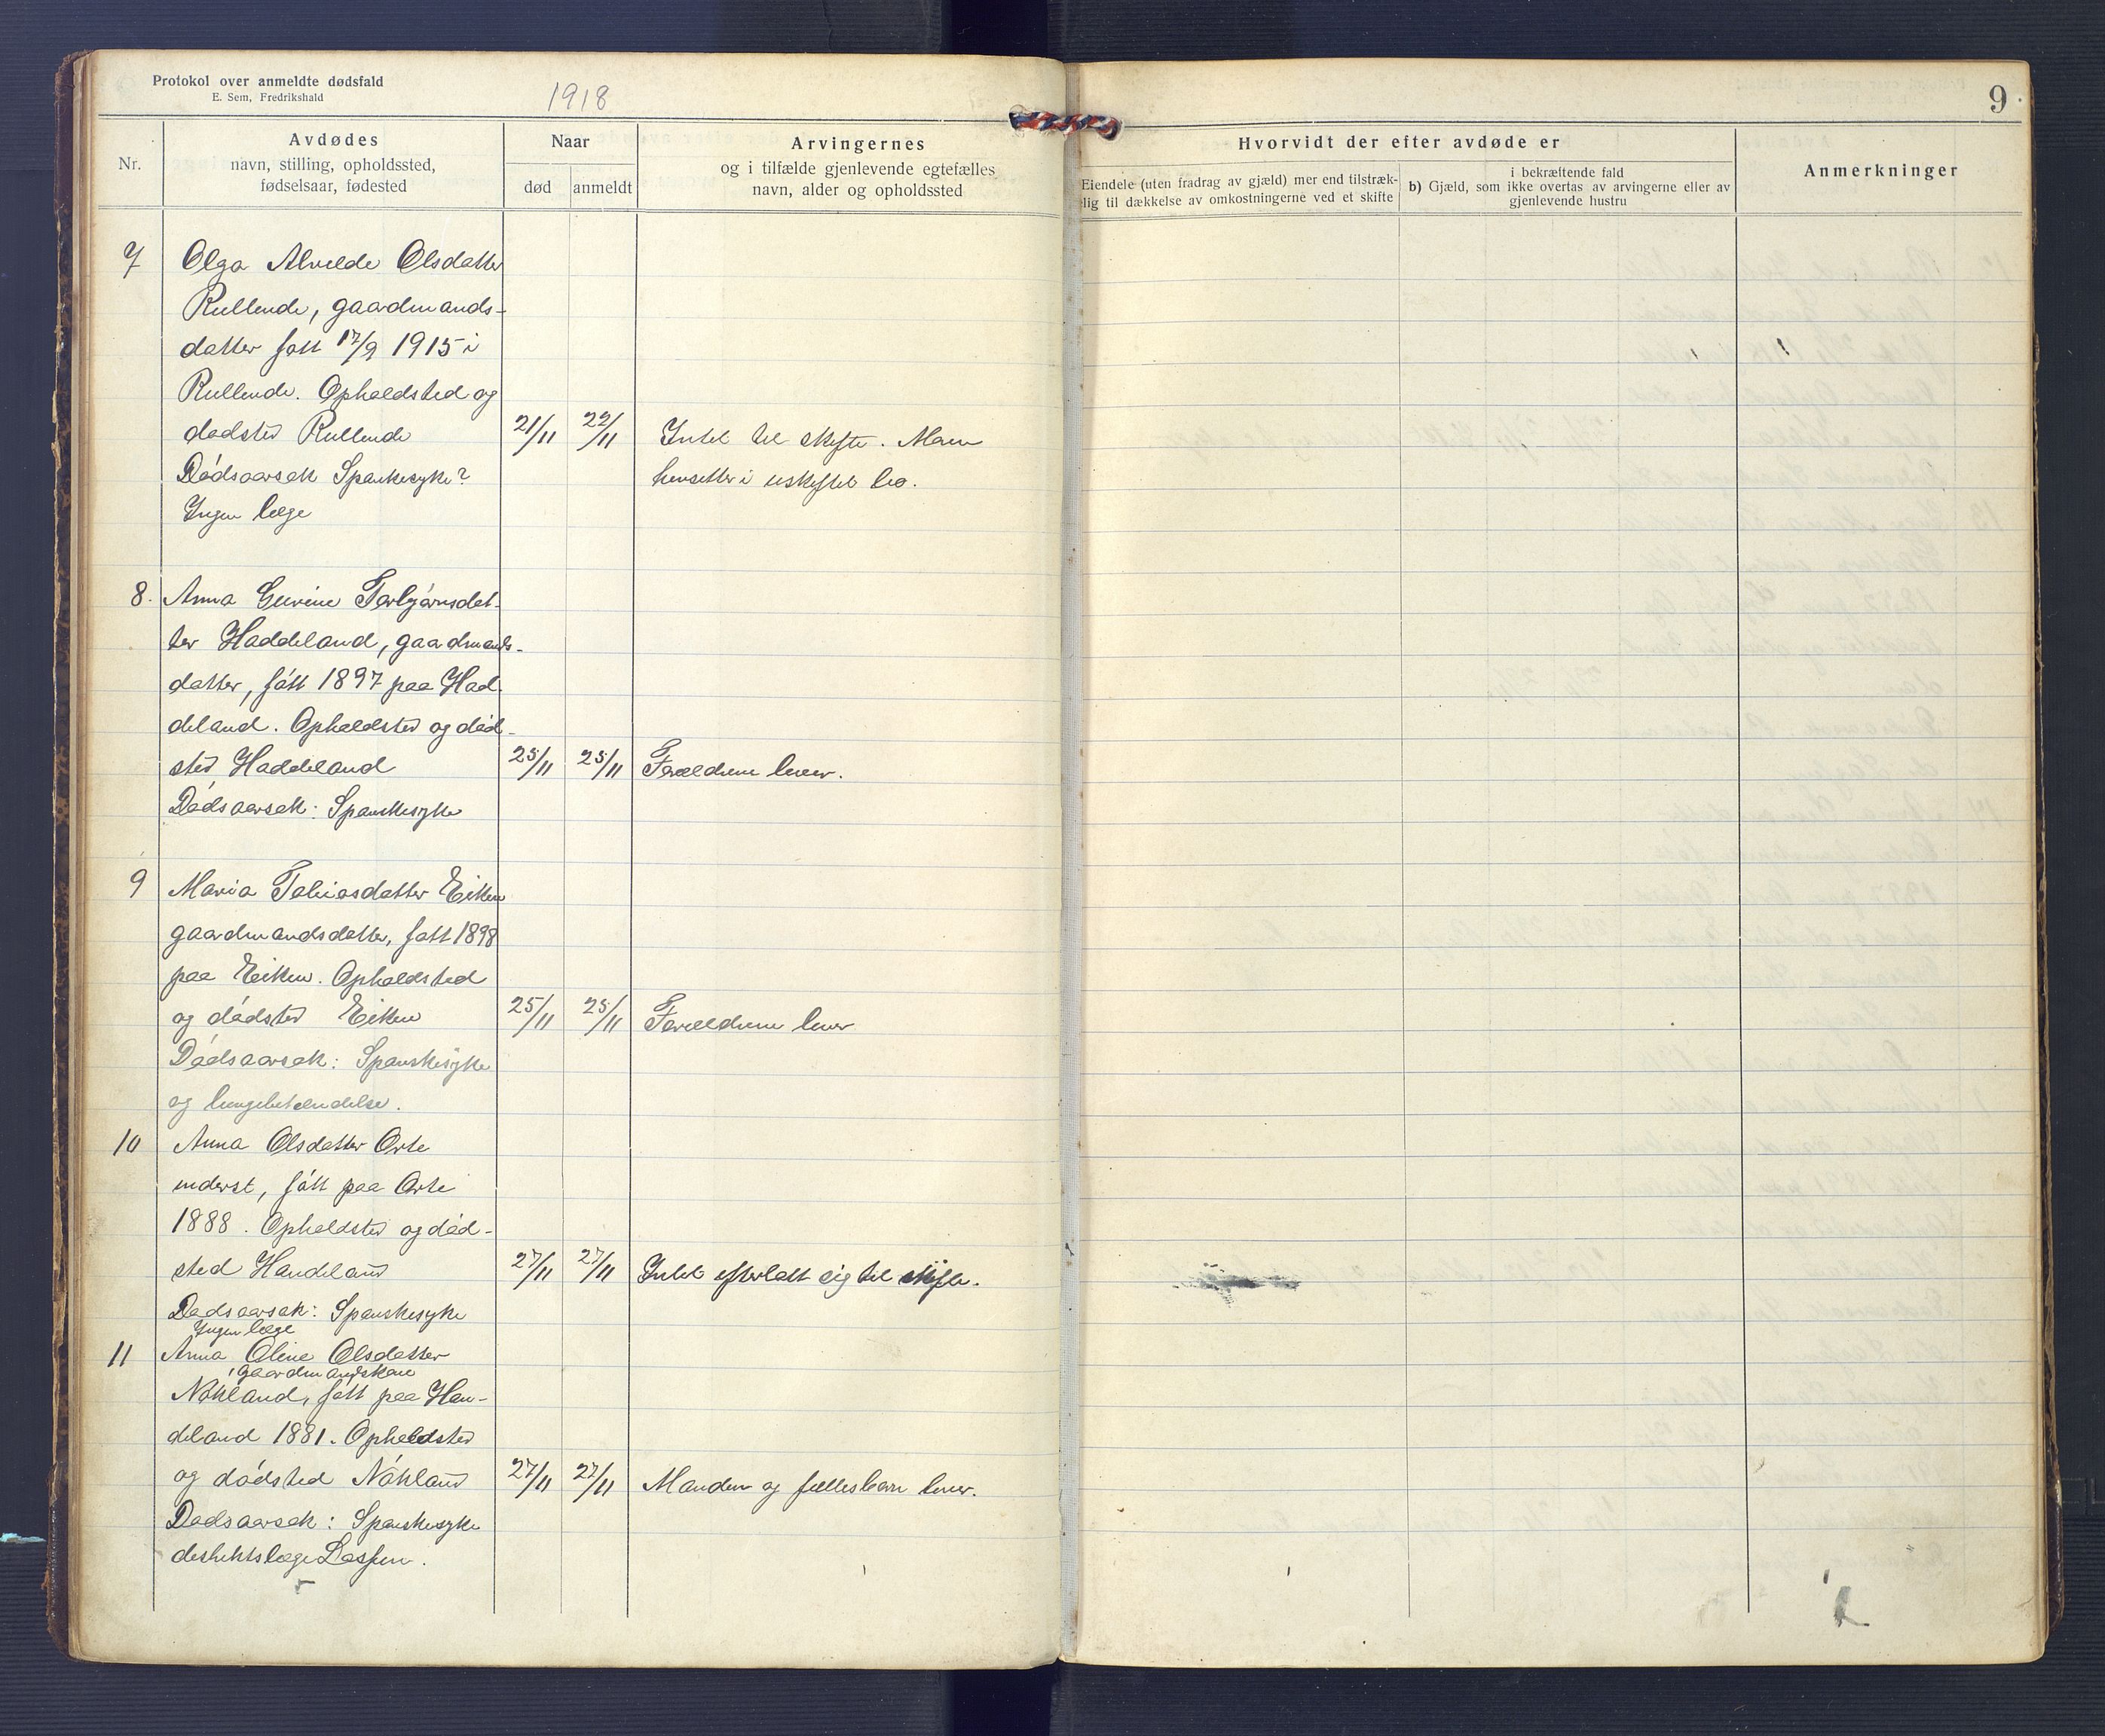 Protokol over anmeldte dødsfald
E. Sem, Fredrikshald
1918
9
Nr.
Avdødes
navn, stilling, opholdssted,
fødselsaar, fødested
Naar
død
anmeldt
Arvingernes
og i tilfælde gjenlevende egtefælles
navn, alder og opholdssted
Hvorvidt der efter avdøde er
Eiendele (uten fradrag av gjæld) mer end tilstræk-
lig til dækkelse av omkostningerne ved et skifte
i bekræftende fald
b) Gjæld, som ikke overtas av arvingerne eller av
gjenlevende hustru
Anmerkninger
7 Olga Alvilde Olsdatter
Rullende, gaardmands-
datter født 17/9 1915 i
Rullende. Opholdsted og
dødsted Rullende 21/11 22/11 Intet til skifte.
Dødsaarsak Spanskesyke? i uskiftet bo.
Ingen læge
8. Anna Gurine Torbjørnsdat-
ter Haddeland, gaardmands-
datter, født 1897 paa Had
deland. Opholdsted og død-
sted Haddeland 25/11 25/11 Forældrene lever.
Dødsaarsak: Spanskesyke
9 Maria Tobiasdatter Eiken
gaardmandsdatter, født 1898
paa Eiken. Opholdsted
og dødsted Eiken 25/11 25/11 Forældrene lever
Dødsaarsak: Spanskesyke
og lungebetændelse.
10 Anna Olsdatter Orte
inderst, født paa Orte
1888. Opholdsted og død-
sted Handeland 27/11 27/11 Intet efterlatt sig til skifte.
Dødsaarsak: Spanskesyke
Ingen læge
11 Anna Oline Olsdatter
gaardmandskone
Nökland, født paa Han-
deland 1881. Opholdsted
og dødsted Nökland 27/11 27/11 Manden og fællesbarn lever.
Dødsaarsak: Spanskesyke
distriktslæge Lassen.